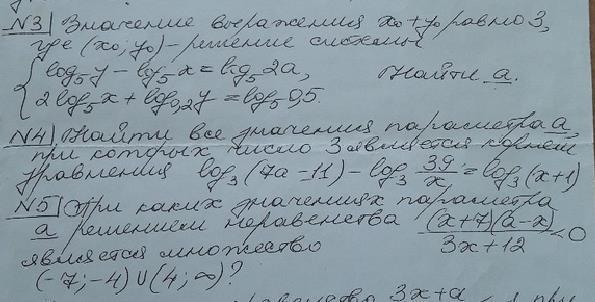 №3 Значение выражения x₀+y₀ равно 3,
где (x₀; y₀) - решение системы
{ log₅y - log₅x = log₅2a,
2log₅x + log₀,₂y = log₅0,5. Найти a.
№4 Найти все значения параметра a,
при которых число 3 является корнем
уравнения log₃(7a-11) - log₃ 39/x = log₃(x+1)
№5 При каких значениях параметра
a решением неравенства (x+7)(a-x)/3x+12 < 0
является множество
(-7; -4) ∪ (4; ∞)?
3x+a